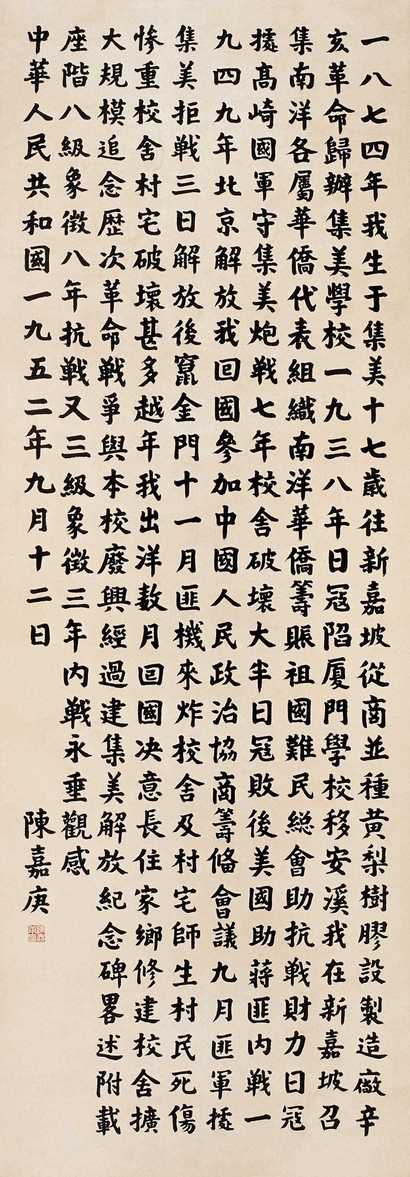 一八七四年我生于集美十七歲往新嘉坡從商並種黃梨樹膠設製造廠辛
亥革命歸辦集美學校一九三八年日冦陷廈門學校移安溪我在新嘉坡召
集南洋各屬華僑代表組織南洋華僑籌賬祖國難民總會助抗戰財力日冦
據高崎國軍守集美炮戰七年校舍破壞大半日冦敗後美國助蔣匪內戰一
九四九年北京解放我回國參加中國人民政治協商籌俻會議九月匪軍據
集美拒戰三日解放後竄金門十一月匪機來炸校舍及村宅師生村民死傷
慘重校舍村宅破壞甚多越年我出洋数月回國决意長住家鄉修建校舍擴
大規模追念歷次革命戰爭與本校廢興經過建集美解放紀念碑畧述附載
座階八級象徵八年抗戰又三級象徵三年內戰永垂觀感
中華人民共和國一九五二年九月十二日
陳嘉庚